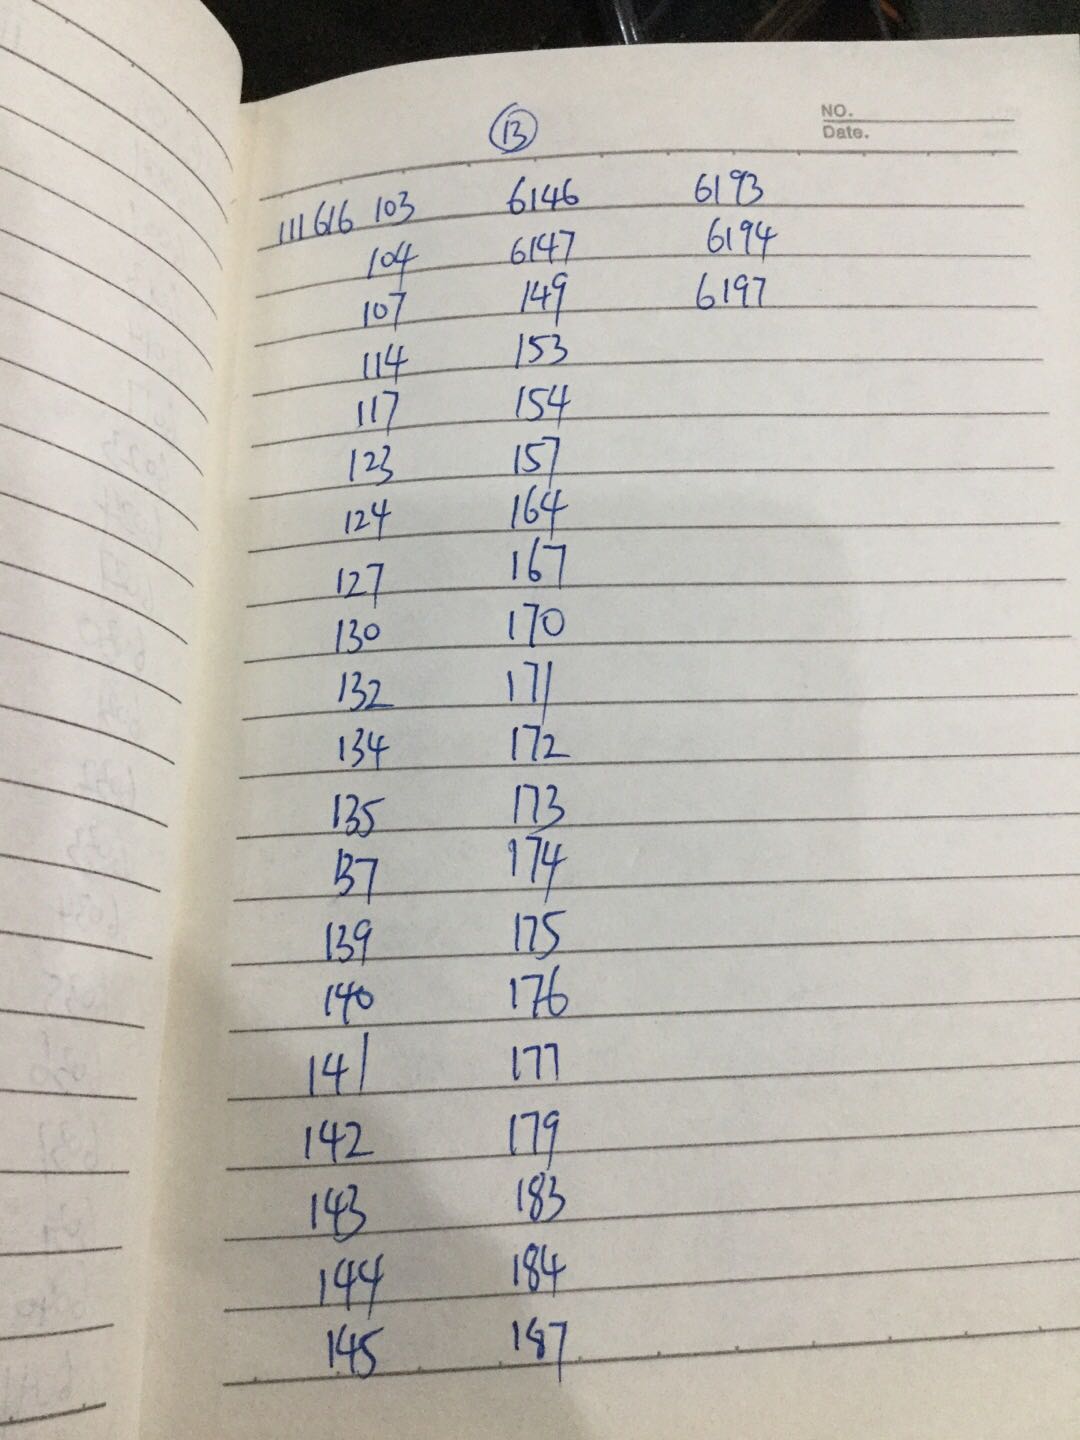 NO.
Date.
13
111616 103 6146 6193
104 6147 6194
107 149 6197
114 153
117 154
123 157
124 164
127 167
130 170
132 171
134 172
135 173
137 174
139 175
140 176
141 177
142 179
143 183
144 184
145 187